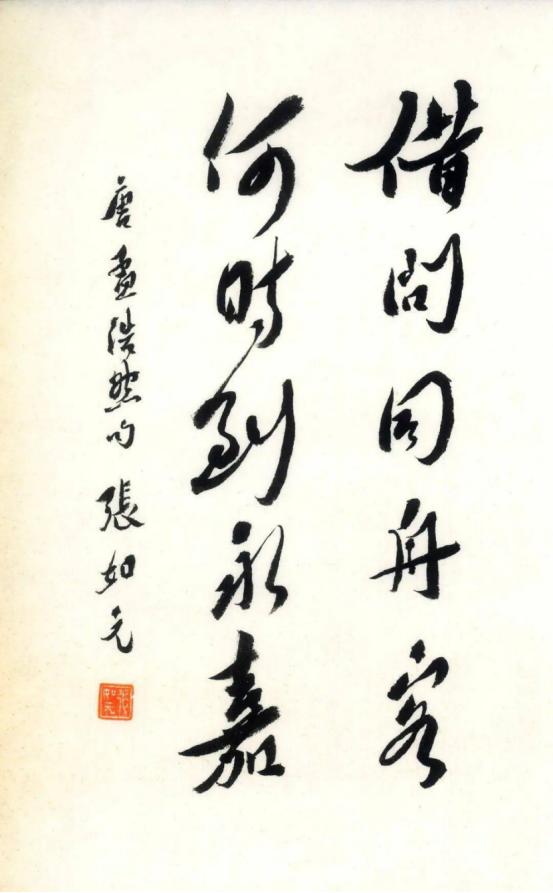 借問同舟客
何時到永嘉
唐孟浩然句 張如元
張如元